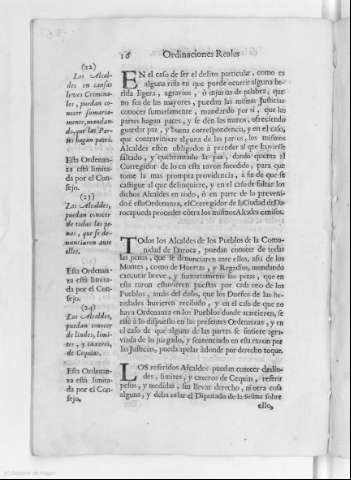 16 Ordinaciones Reales
(22)
Los Alcaldes
en causas
leves Criminales,
puedan conocer
sumariamente,
mandando,
que las Partes
hagan pazes.
Esta Ordenanza
está limitada
por el Consejo.
EN el caso de ser el delito particular, como es
alguna riña en que puede ocurrir alguna herida
ligera, agravios, ò injurias de palabra, que
no sea de las mayores, puedan las mismas Justicias
conocer sumariamente, mandando por sì, que las
partes hagan pazes, y se den las manos, ofreciendo
guardar paz, y buena correspondencia, y en el caso,
que contraviniere alguna de las partes, los mismos
Alcaldes estèn obligados à prender al que huviesse
faltado, y quebrantado la paz, dando quenta al
Corregidor de lo en esta razon sucedido, para que
tome la mas prompta providencia, à fin de que se
castigue al que delinquiere, y en el caso de faltar los
dichos Alcaldes en todo, ò en parte de la prevenido
è esta Ordenanza, el Corregidor de la Ciudad de Daroca
pueda proceder còtra los mismos Alcades omisos.
(23)
Los Alcaldes,
puedan conocer
de todas las penas,
que se denunciaren
ante
ellos.
Esta Ordenanza
está limitada
por el Consejo.
TOdos los Alcaldes de los Pueblos de la Comunidad
de Daroca, puedan conocer de todas
las penas, que se denunciaren ante ellos, assi de los
Montes, como de Huertas, y Regadios, mandando
executar breve, y sumariamente las penas, que en
esta razon estuvieren puestas por cada uno de los
Pueblos, amàs del daño, que los Dueños de las heredades
hurieren recibido, y en el caso de que no
haya Ordenanza en los Pueblos donde acaecieren, se
estè à lo dispuesto en las presentes Ordenanzas, y en
el caso de que alguno de las partes se sintiere agraviada
de lo juzgado, y sentenciado en esta razon por
las Justicias, pueda apelar àdonde por derecho toque.
(24)
Los Alcaldes,
puedan conocer
de lindes, limites,
y caxeros,
de Cequias.
Esta Ordenanza
está limitada
por el Consejo.
LOS referidos Alcaldes puedan conocer de lindes,
limites, y caxeros de Cequias, refirir
pesos, y medidas, sin llevar derecho, ni otra cosa
alguna, y deba zelar el Diputado de la Sesma sobre
ello,